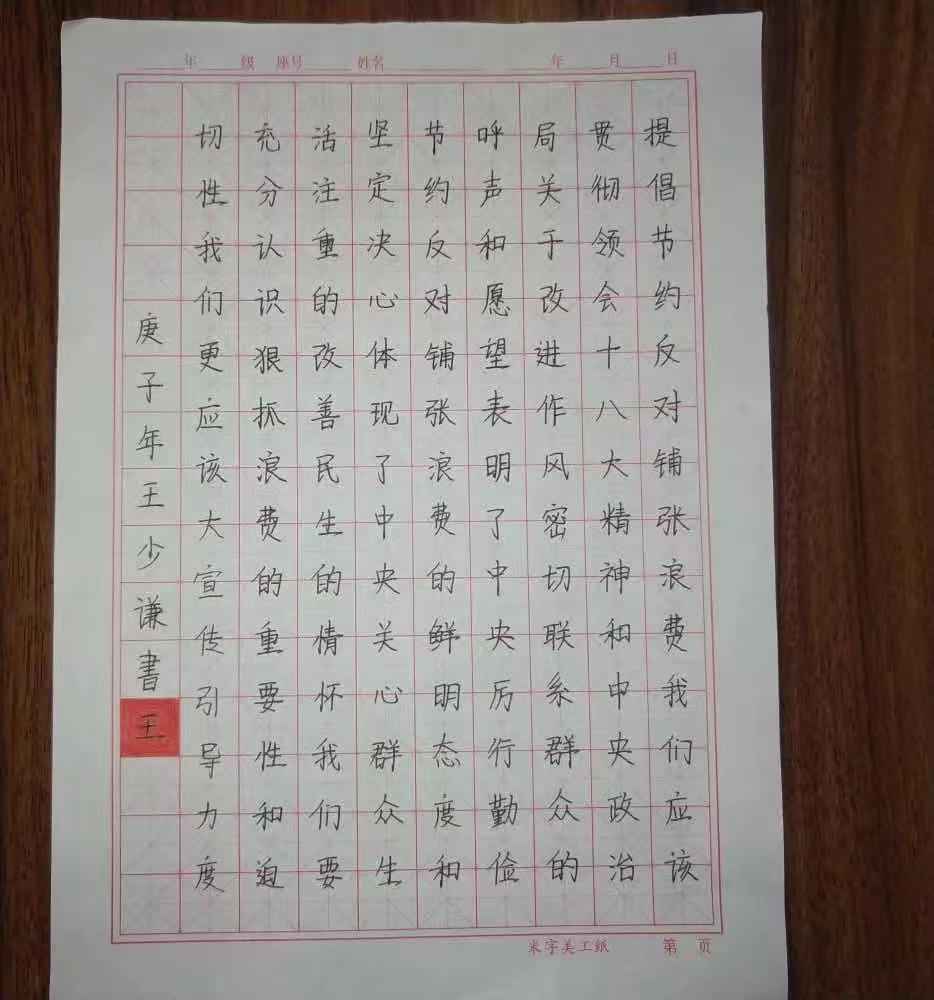 年 级 座号 姓名 年 月 日
提倡节约反对铺张浪费我们应该
贯彻领会十八大精神和中央政治
局关于改进作风密切联系群众的
呼声和愿望表明了中央厉行勤俭
节约反对铺张浪费的鲜明态度和
坚定决心体现了中央关心群众生
活注重的改善民生的情怀我们要
充分认识狠抓浪费的重要性和迫
切性我们更应该大宣传引导力度
庚子年王少谦書王
米字美工纸 第 页